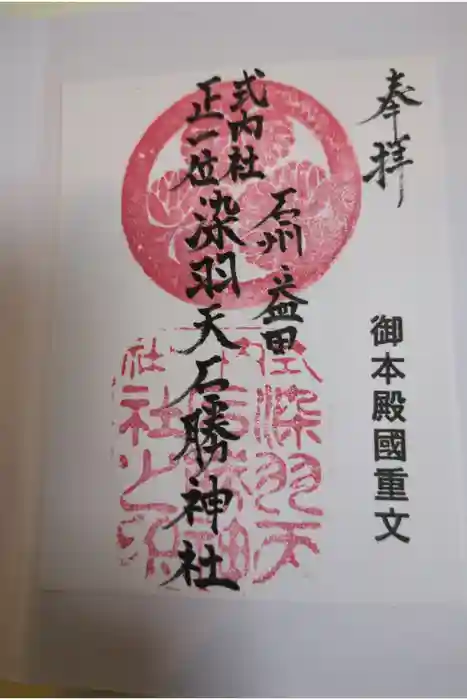 奉拝
御本殿國重文
石州益田
式内社
正一位染羽天石勝神社